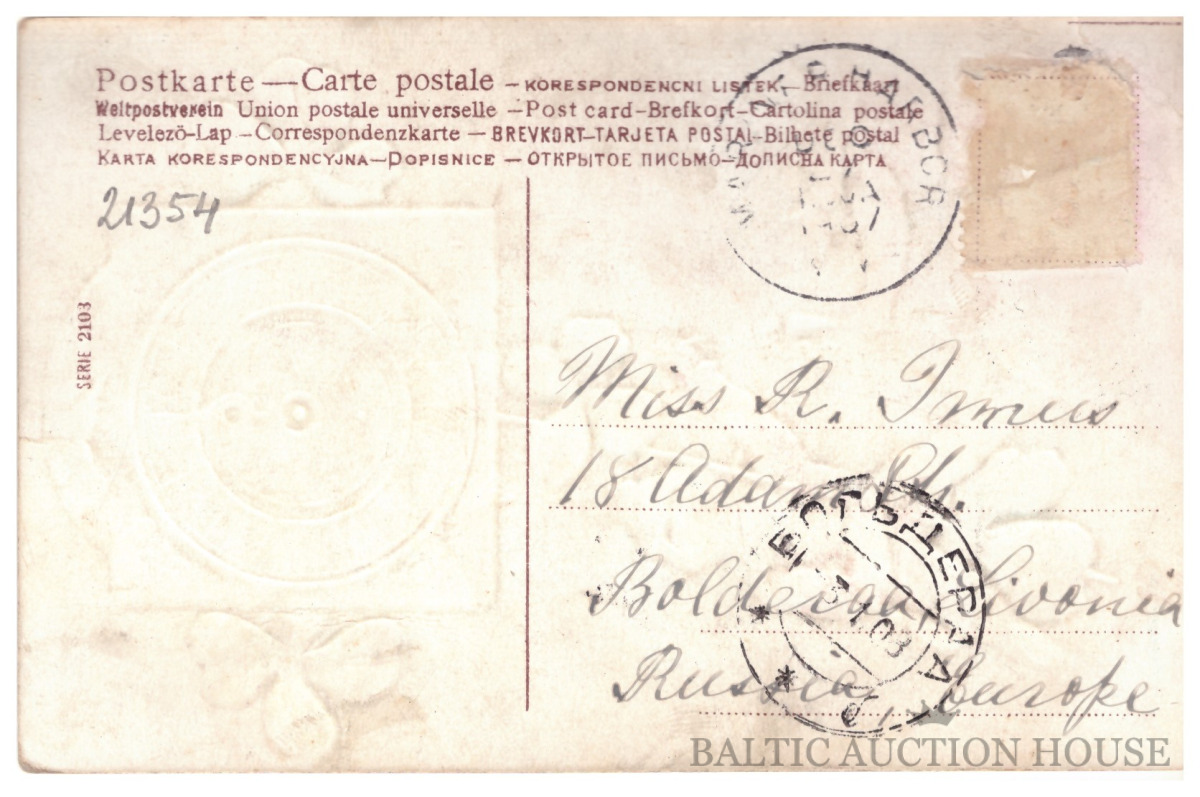 Postkarte — Carte postale – KORESPONDENCNI LISTEK – Briefkaart
Weltpostverein Union postale universelle – Post card – Brefkort – Cartolina postale
Levelezö-Lap – Correspondenzkarte – BREVKORT – TARJETA POSTAL – Bilhete postal
KARTA KORESPONDENCYJNA – DOPISNICE – ОТКРЫТОЕ ПИСЬМО – ДОПИСНА КАРТА
21354
SERIE 2103
Miss R.
18 Adam
Bolderaa, Livonia
Russia, Europe
БОЛЬДЕРАА
BALTIC AUCTION HOUSE